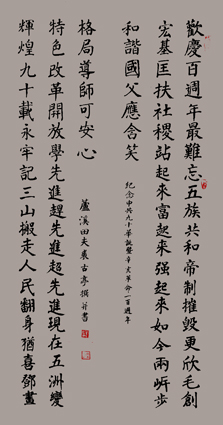 歡慶百週年最難忘五族共和帝制摧毀更欣毛創
宏基匡扶社稷站起來富起來强起來如今兩岍步
和諧國父應含笑
紀念中共九十華誕暨辛亥革命一百週年
格局導師可安心
特色改革開放學先進趕先進超先進現在五洲變
輝煌九十載永牢記三山搬走人民翻身猶喜鄧畫
蘆溪田夫裴古亭撰并書